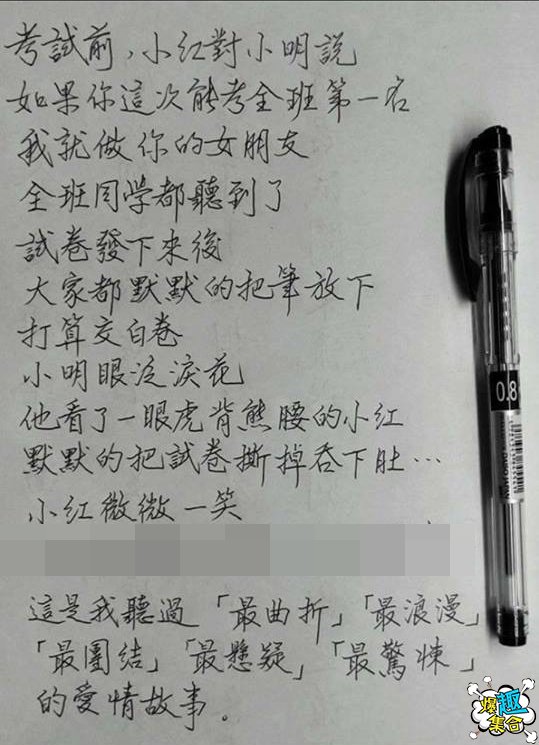 考試前，小红對小明說
如果你這次能考全班第一名
我就做你的女朋友
全班同学都聽到了
試卷發下來後
大家都默默的把筆放下
打算交白卷
小明眼泛淚花
他看了一眼虎背熊腰的小红
默默的把試卷撕掉吞下肚…
小红微微一笑
這是我聽過「最曲折」「最浪漫」
「最團結」「最懸疑」「最驚悚」
的愛情故事。
0.8
爆趣集合